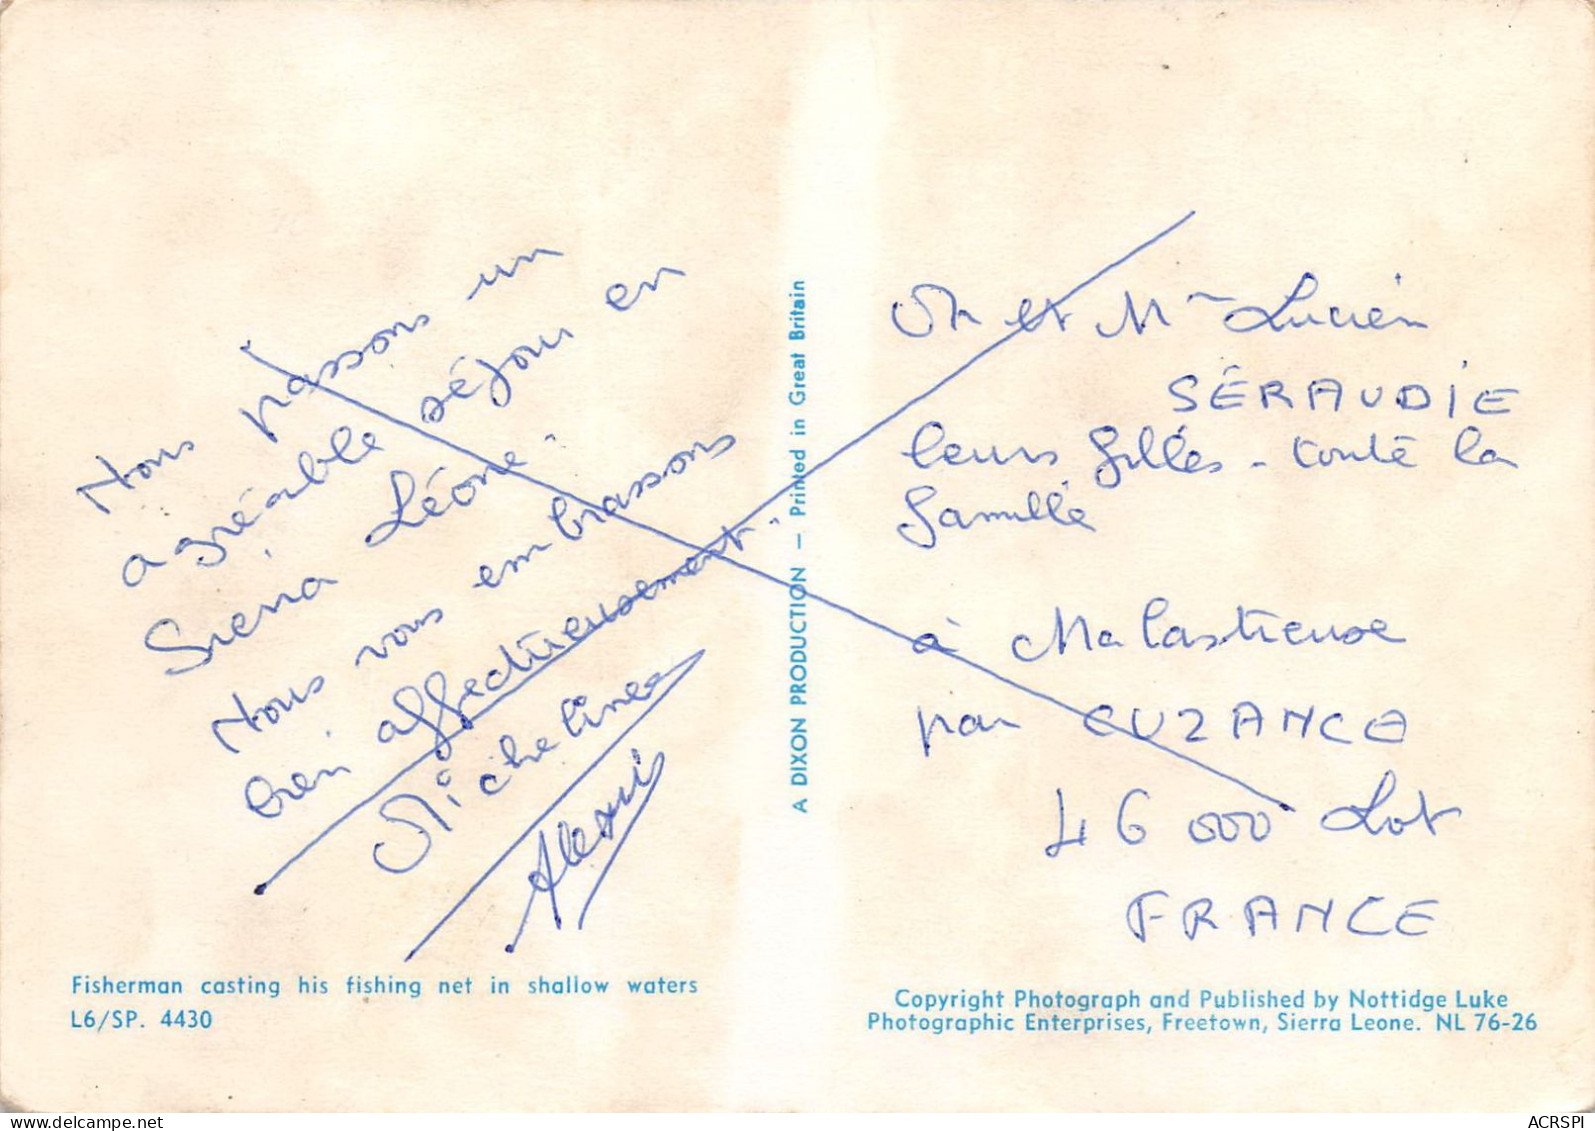 Nous passons un
agréable séjour en
Sierra Léone.
Nous vous embrassons
bien affectueusement.
Micheline
Alexis
Fisherman casting his fishing net in shallow waters
L6/SP. 4430
A DIXON PRODUCTION — Printed in Great Britain
Mr et Mme Lucien
SÉRAUDIE
leurs filles - toute la
famille
à Malastreuse
par CUZANCE
46 000 Lot
FRANCE
Copyright Photograph and Published by Nottidge Luke
Photographic Enterprises, Freetown, Sierra Leone. NL 76-26
www.delcampe.net
ACRSPI